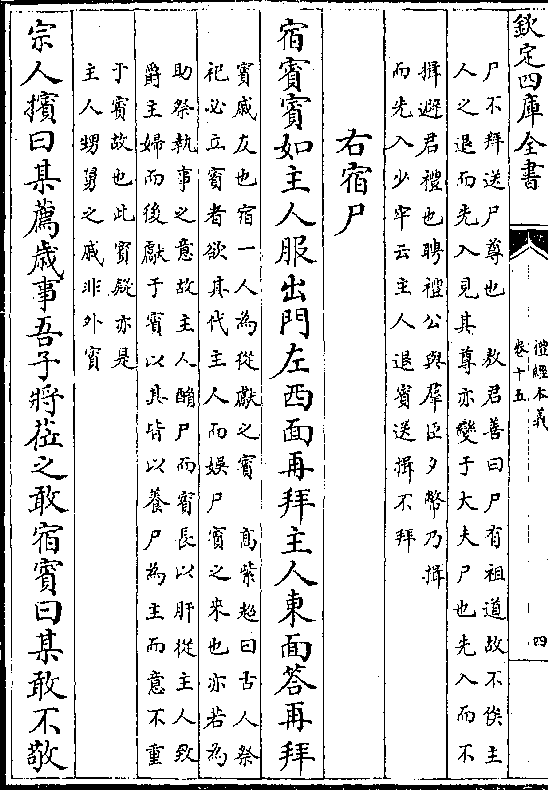 欽定四庫全書
禮經本義
卷十五
四
尸不拜送尸尊也　敖君善曰尸有祖道故不俟主
人之退而先入見其尊亦變于大夫尸也先入而不
揖避君禮也聘禮公與羣臣夕幣乃揖
而先入少牢云主人退賓送揖不拜
右宿尸
宿賓賓如主人服出門左西面再拜主人東面答再拜
賓戚友也宿一人為從獻之賓　高紫超曰古人祭
祀必立賓者欲其代主人而娯尸賓之來也亦若為
助祭執事之意故主人酳尸而賓長以肝從主人致
爵主婦而後獻于賓以其皆以養尸為主而意不重
于賓故也此賓疑亦是
主人甥舅之戚非外賓
宗人擯曰某薦歳事吾子將莅之敢宿賓曰某敢不敬